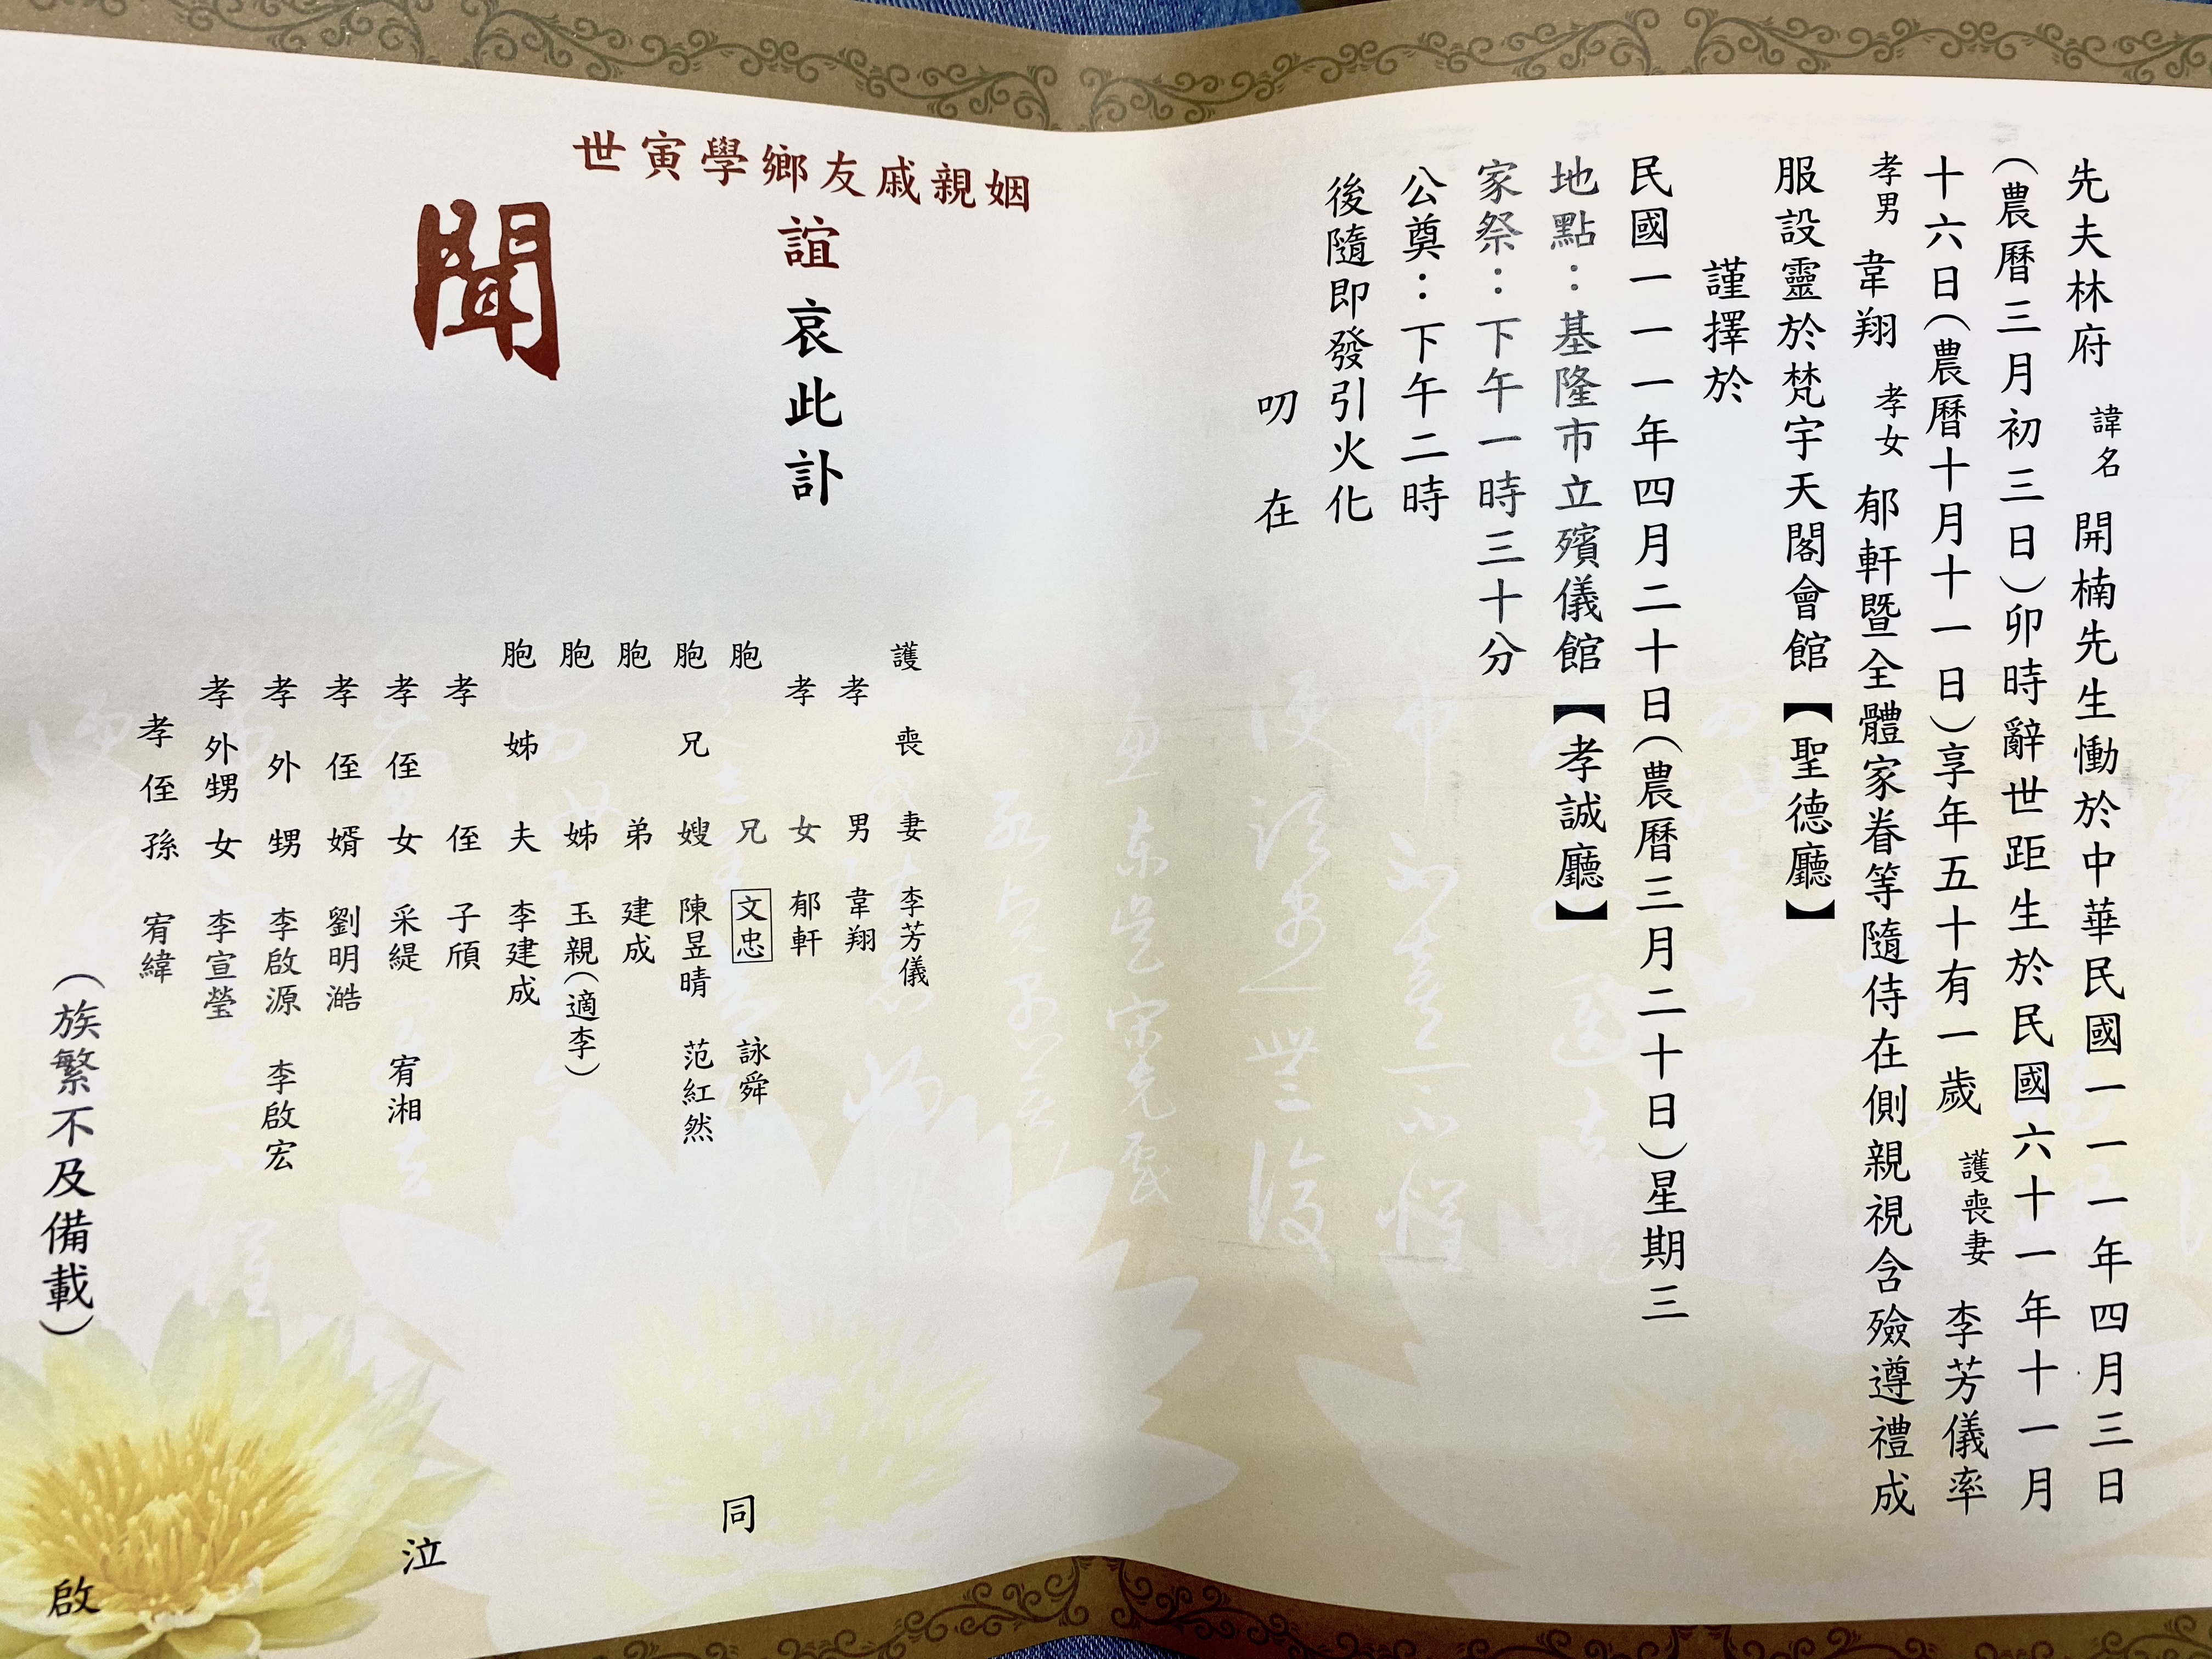 先夫林府 諱名 開楠先生慟於中華民國一一一年四月三日
(農曆三月初三日)卯時辭世距生於民國六十一年十一月
十六日(農曆十月十一日)享年五十有一歲 護喪妻 李芳儀率
孝男 韋翔 孝女 郁軒暨全體家眷等隨侍在側親視含殮遵禮成
服設靈於梵宇天閣會館【聖德廳】
謹擇於
民國一一一年四月二十日(農曆三月二十日)星期三
地點:基隆市立殯儀館【孝誠廳】
家祭:下午一時三十分
公奠:下午二時
後隨即發引火化
叨在
姻親戚友鄉學寅世
誼哀此訃
聞
護喪妻 李芳儀
孝男 韋翔
孝女 郁軒
胞兄 文忠 詠舜
胞兄嫂 陳昱晴 范紅然
胞弟 建成
胞姊 玉親(適李)
胞姊夫 李建成
孝侄 子頎
孝侄女 采緹 宥湘
孝侄婿 劉明澔
孝外甥 李啟源 李啟宏
孝外甥女 李宣瑩
孝侄孫 宥緯
(族繁不及備載)
同泣啟